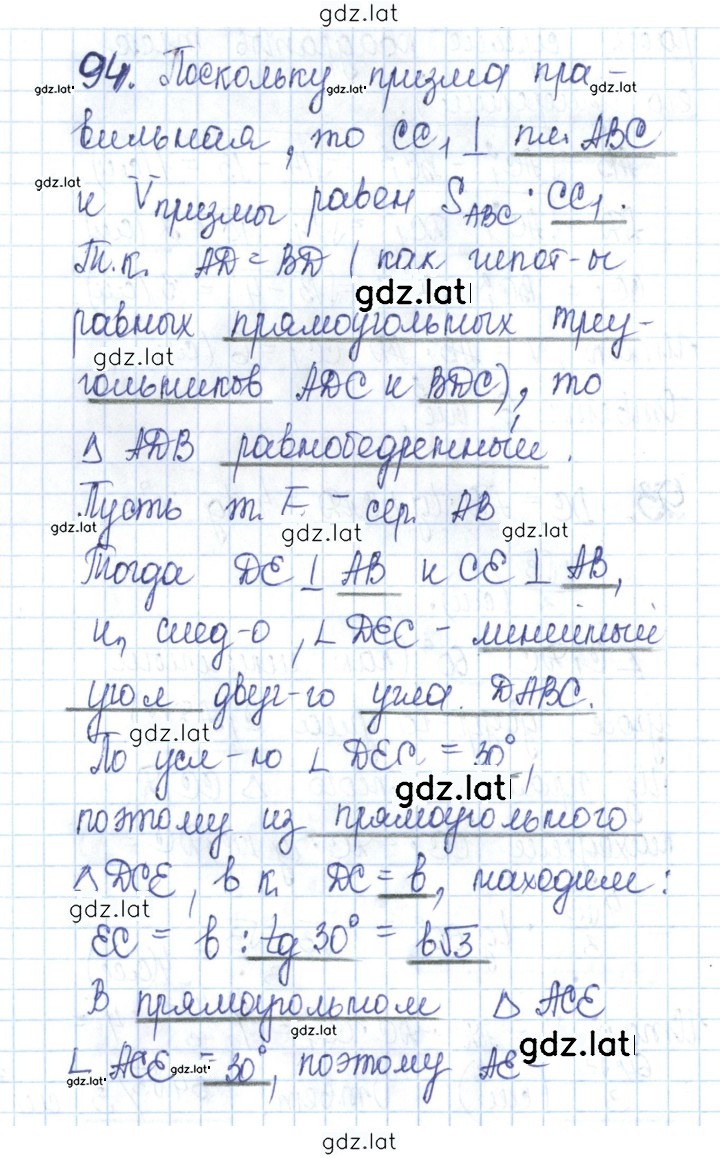 gdz.lat
94. Поскольку призма пра-
gdz.lat gdz.lat gdz.lat
вильная, то CC₁ ⊥ пл. ABC
gdz.lat
и Vпризмы равен S_ABC · CC₁.
Т.к. AD = BD (как гипот-ы
gdz.lat
равных прямоугольных треу-
gdz.lat
гольников ADC и BDC), то
△ ADB равнобедренный.
Пусть т. E - сер. AB
gdz.lat gdz.lat gdz.lat
Тогда DE ⊥ AB и CE ⊥ AB,
и, след-о, ∠ DEC - линейный
угол двугр-го угла DABC.
gdz.lat
По усл-ю ∠ DEC = 30°,
gdz.lat
поэтому из прямоугольного
△ DCE, в к. DC = b, находим:
gdz.lat
EC = b : tg 30° = b√3
В прямоугольном △ ACE
gdz.lat
gdz.lat
∠ ACE = 30°, поэтому AE =
gdz.lat gdz.lat
gdz.lat